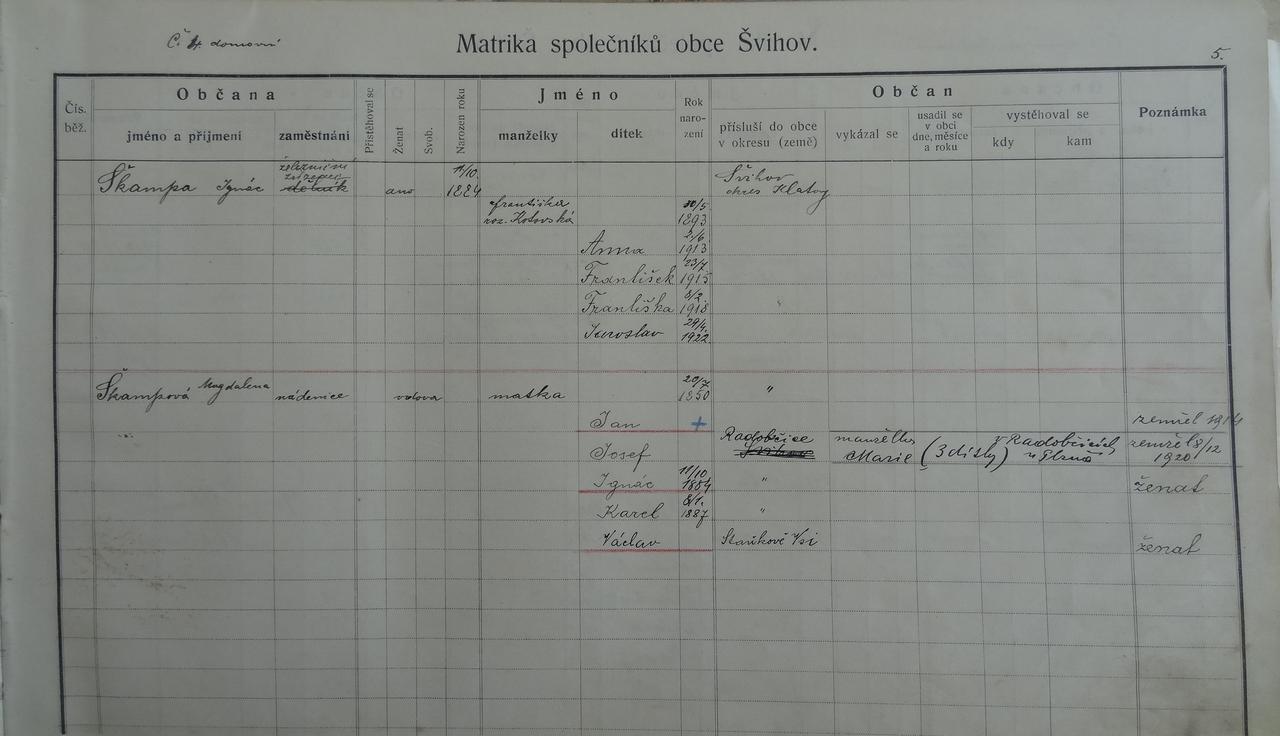 Č. 4. domovní
Matrika společníků obce Švihov.
5.
Čís. běž.
Občana
jméno a příjmení
zaměstnání
Přistěhoval se
Ženat
Svob.
Narozen roku
Jméno
manželky
dítek
Rok naro- zení
Občan
přísluší do obce v okresu (země)
vykázal se
usadil se v obci dne, měsíce a roku
vystěhoval se
kdy
kam
Poznámka
železniční zřízenec
Škampa Ignác dělník ano 11/10. 1884 Švihov okres Klatovy
Františka roz. Kotovská 30/5 1893
Anna 2/6 1913
František 23/7 1915
Františka 8/2. 1918 "
Jaroslav 29/4. 1922
Škampová Magdalena nádenice vdova matka 20/7 1850 "
Jan + zemřel 1914
Josef Radobčice Švihov manželka Marie (3 dítky) v Radobčicích u Plzně zemřel 8/12 1920
Ignác 11/10 1884 " ženat
Karel 8/1. 1887 "
Václav Staňkově Vsi ženat